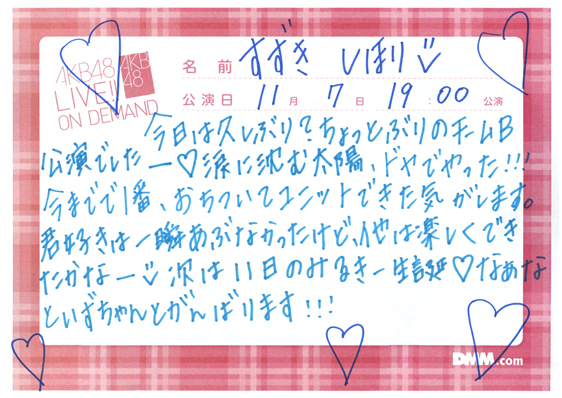 AKB48
LIVE!!
ON DEMAND
AKB
48
名前 すずき しほり
公演日 11月 7日 19:00 公演
今日は久しぶりでちょっとぶりのチームB
公演でしたー♡涙に沈む太陽、ドヤでやった!!!
今までで1番、おちついてユニットできた気がします。
君好きは一瞬あぶなかったけど、他は楽しくでき
たかなー 次は11日のみるきー生誕♡なぁな
といずちゃんとがんばります!!!
DMM.com